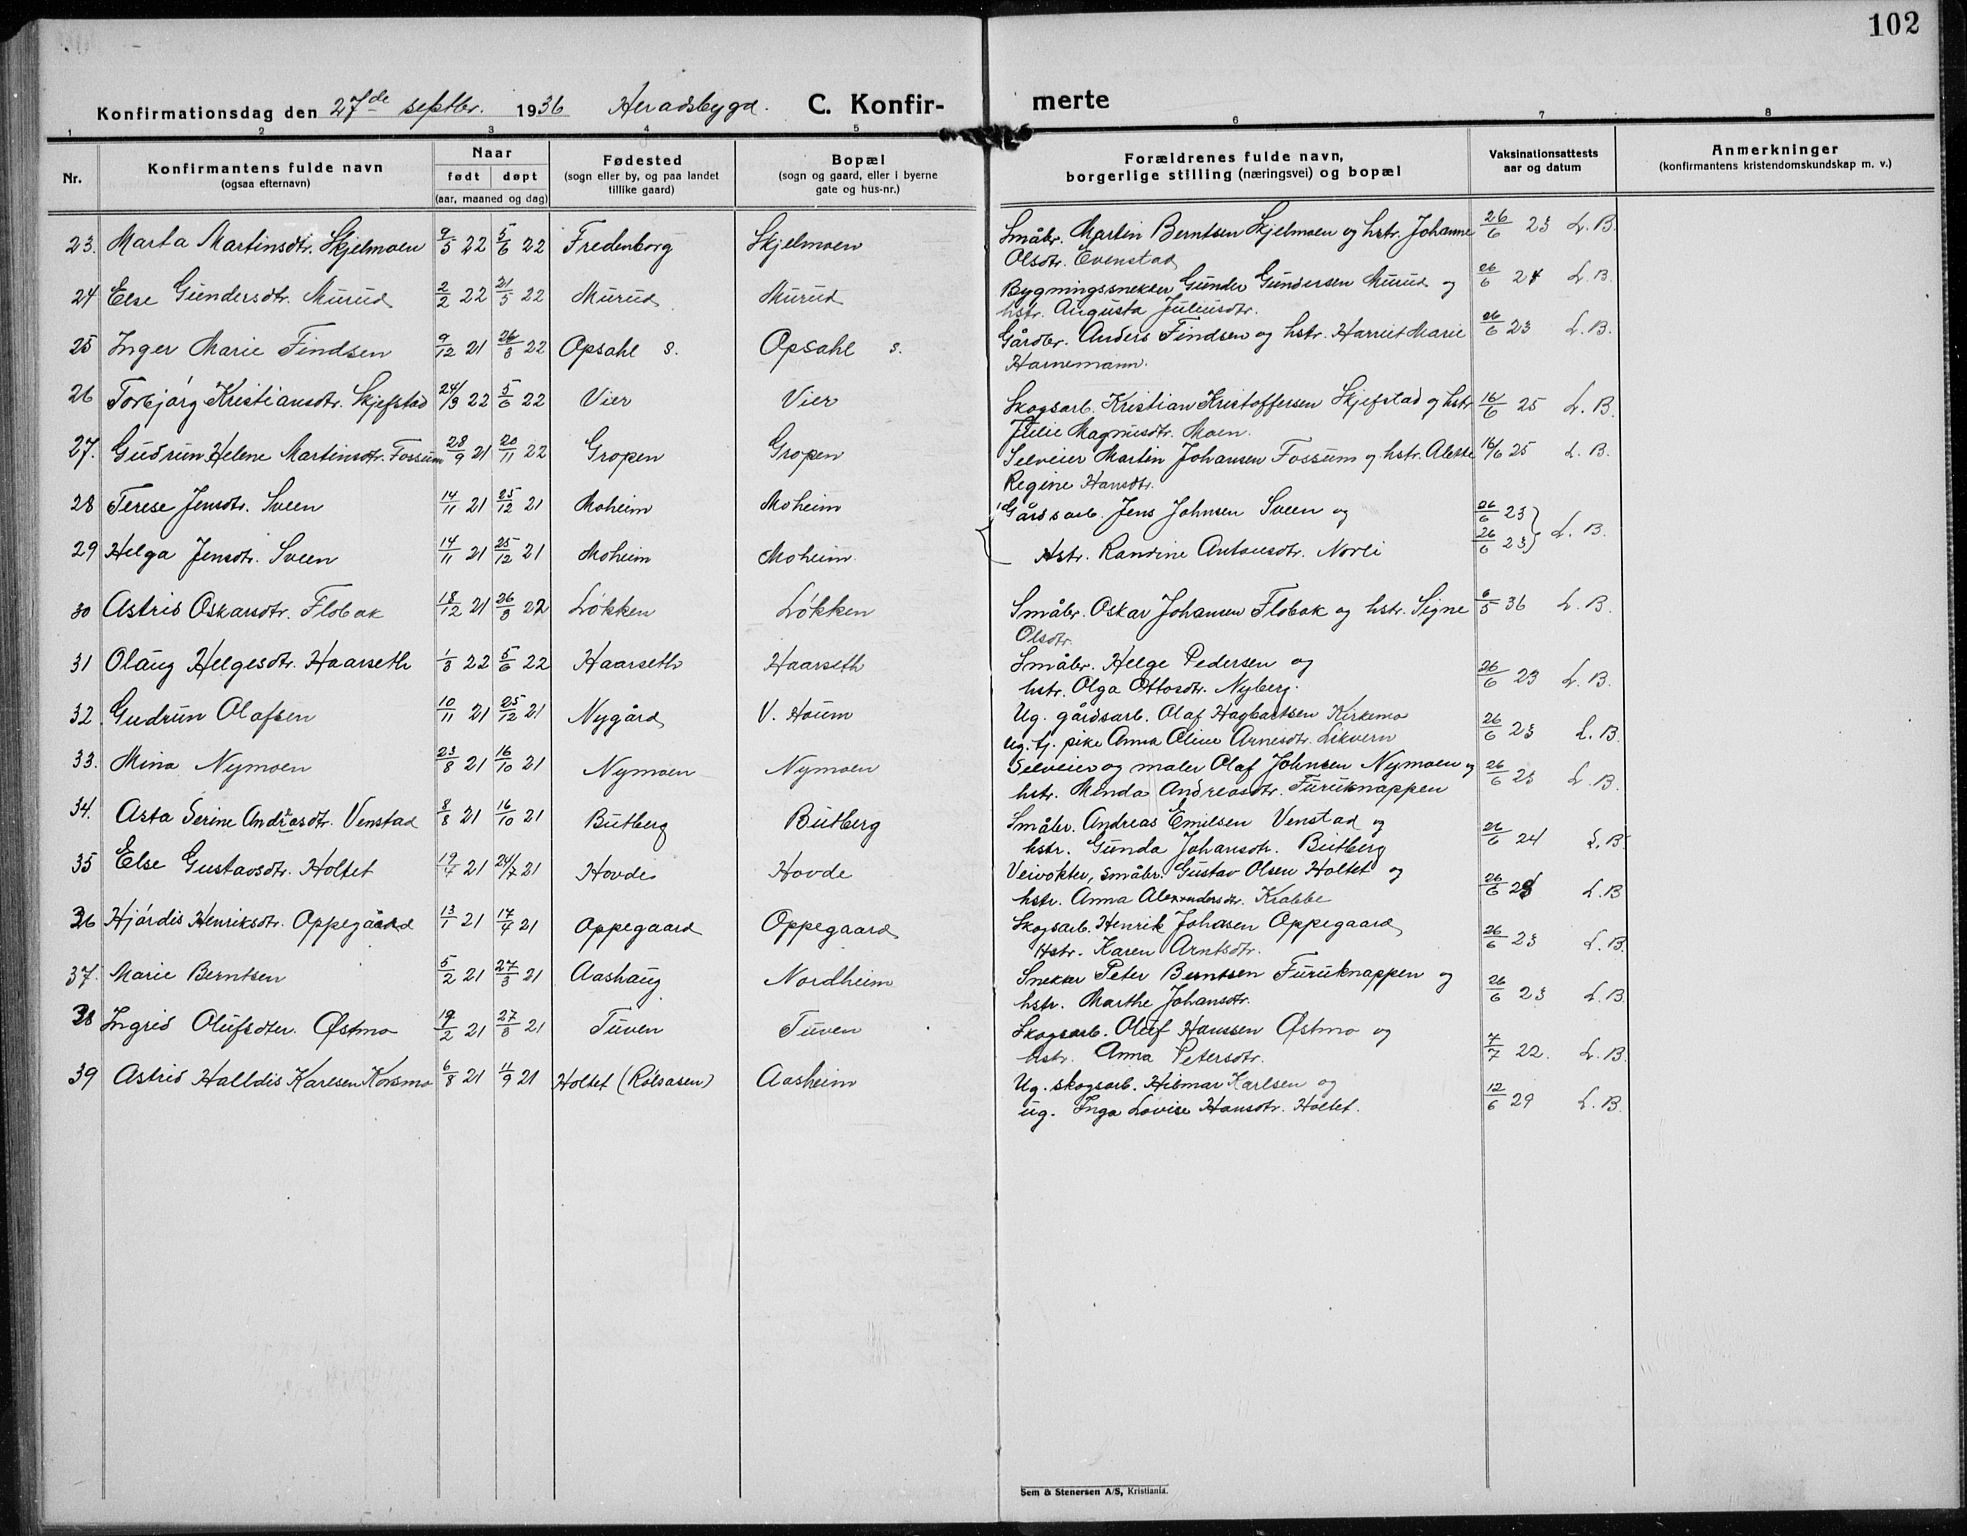 102
Konfirmationsdag den 27de septbr. 1936 Heradsbygd. C. Konfir-
merte
1 2 3 4 5 6 7 8
Nr. Konfirmantens fulde navn (ogsaa efternavn) Naar født døpt (aar, maaned og dag) Fødested (sogn eller by, og paa landet tillike gaard) Bopæl (sogn og gaard, eller i byerne gate og hus-nr.) Forældrenes fulde navn, borgerlige stilling (næringsvei) og bopæl Vaksinationsattests aar og datum Anmerkninger (konfirmantens kristendomskundskap m. v.)
23. Marta Martinsdtr. Skjelmoen 9/5 22 5/6 22 Fredenborg Skjelmoen Småbr. Martin Berntsen Skjelmoen og hstr. Johanne 26/6 23 L. B.
Olsdtr. Evenstad
24 Else Gundersdtr. Murud 2/2 22 21/5 22 Murud Murud Bygningssnekker Gunder Gundersen Murud og 26/6 24 L. B.
hstr. Augusta Juliusdtr.
25 Inger Marie Findsen 9/12 21 26/3 22 Opsahl s. Opsahl s. Gårdbr. Anders Findsen og hstr. Harriet Marie 26/6 23 L. B.
Hornemann.
26 Torbjørg Kristiansdtr. Skjefstad 24/3 22 5/6 22 Vier Vier Skogsarb. Kristian Kristoffersen Skjefstad og hstr 16/6 25 L. B.
Julie Magnusdtr. Moen.
27. Gudrun Helene Martinsdtr. Fossum 28/9 21 20/11 22 Gropen Gropen Selveier Martin Johansen Fossum og hstr. Alette 16/6 25 L. B.
Regine Hansdtr.
28 Terese Jensdtr. Sveen 14/11 21 25/12 21 Moheim Moheim Gårdsarb. Jens Johnsen Sveen og 26/6 23
29 Helga Jensdtr. Sveen 14/11 21 25/12 21 Moheim Moheim. Hstr. Randine Antonsdtr. Norli 26/6 23 } L. B.
30 Astrid Oskarsdtr. Flobak 18/12 21 26/3 22 Løkken Løkken Småbr. Oskar Johansen Flobak og hstr. Signe 6/5 36 L. B.
Olsdtr.
31 Olaug Helgesdtr. Haarseth 1/3 22 5/6 22 Haarseth Haarseth Småbr. Helge Pedersen og
hstr. Olga Ottosdtr. Nyberg. 26/6 23 L. B.
32. Gudrun Olafsen 10/11 21 25/12 21 Nygård V. Houm Ug. gårdsarb. Olaf Hagbartsen Kirkemo
ug. tj. pike Anna Oline Arnesdtr. Likvern 26/6 23 L. B.
33. Mina Nymoen 23/8 21 16/10 21 Nymoen Nymoen Selveier og maler Olaf Johnsen Nymoen og
hstr. Minda Andreasdtr. Furuknappen 26/6 23 L. B.
34. Asta Serine Andreasdtr. Venstad 8/8 21 16/10 21 Butberg Butberg Småbr. Andreas Emilsen Venstad og
hstr. Gunda Johansdtr. Butberg 26/6 24 L. B.
35 Else Gustavsdtr. Holtet 19/4 21 24/7 21 Hovde Hovde Veivokter, småbr. Gustav Olsen Holtet og
hstr. Anna Alexandersdtr. Krabbe 26/6 28 L. B
36 Hjørdis Henriksdtr. Oppegaard 13/1 21 17/4 21 Oppegaard Oppegaard Skogsarb. Henrik Johasen Oppegaard
Hstr. Karen Arntsdtr. 26/6 23 L. B.
37. Marie Berntsen 5/2 21 27/3 21 Aashaug Nordheim Snekker Peter Berntsen Furuknappen og
hstr. Marthe Johansdtr. 26/6 23 L. B.
38 Ingrid Olufsdter. Østmo 19/2 21 27/3 21 Tuven Tuven Skogsarb. Oluf Hanssen Østmo og
hstr. Anna Petersdtr. 7/7 22. L. B.
39 Astrid Halldis Karlsen Korsmo 6/8 21 11/9 21 Holtet (Rølsåsen) Aasheim Ug. skogsarb. Hilmar Karlsen og
ug. Inga Lovise Hansdtr. Holtet. 12/6 29 L. B.
Sem & Stenersen A/S, Kristiania.